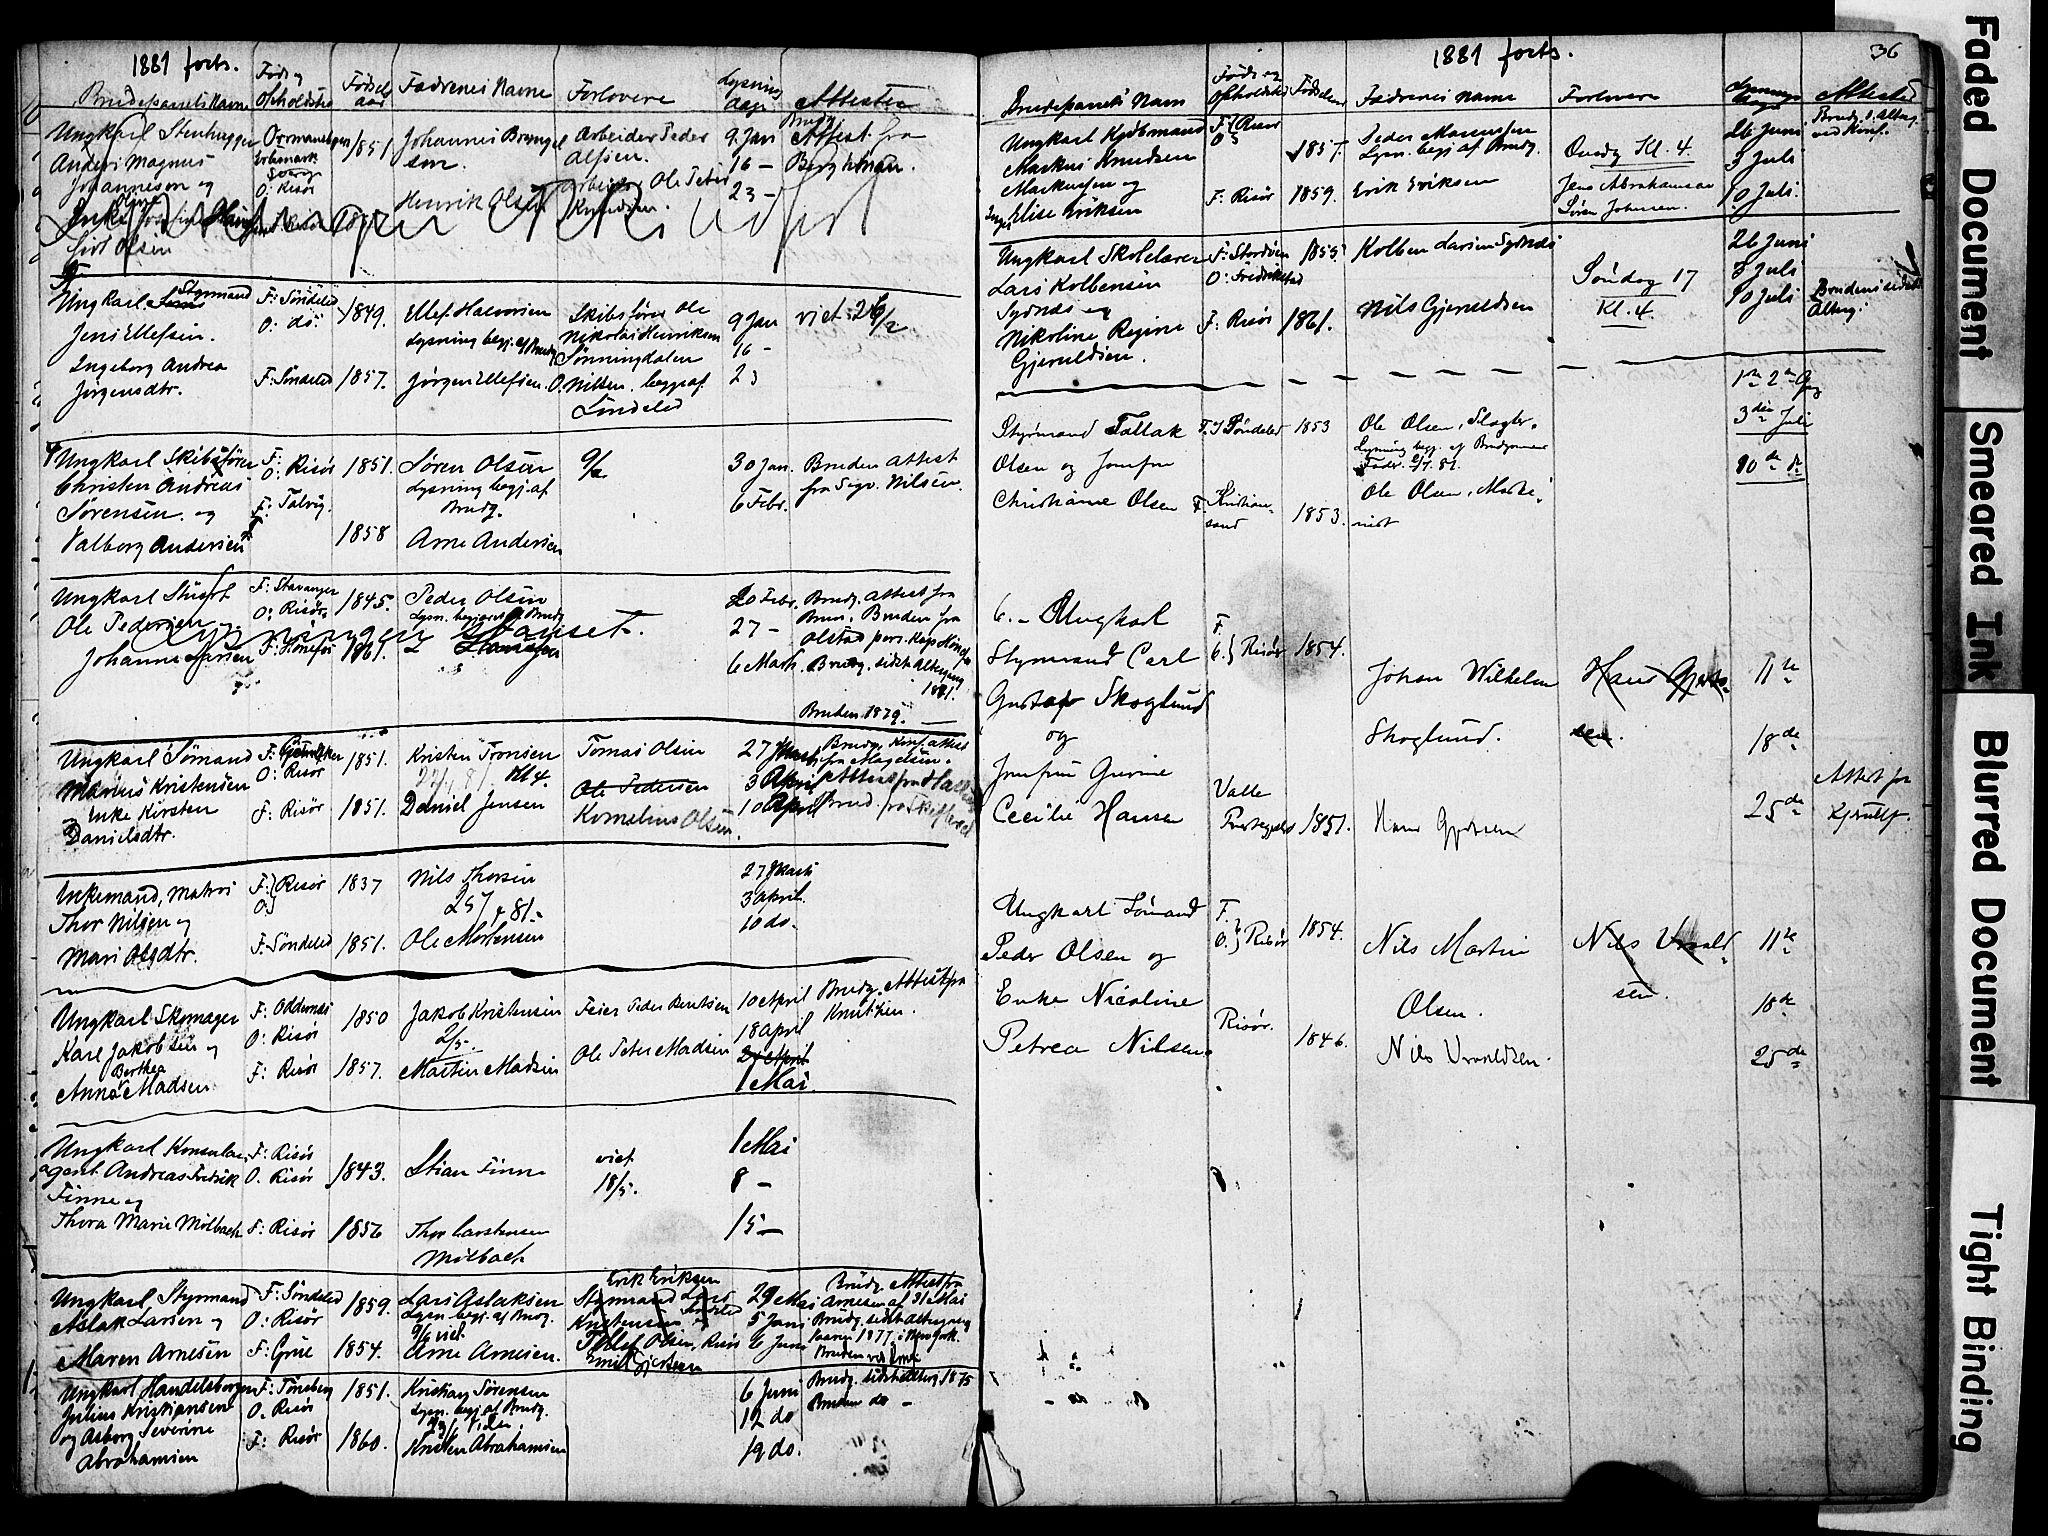 1881 forts.
Brudeparrets Navne
Føds og Opholdsted
Fødsels aar
Fædrenes Navne
Forlovere
Lysnings dage
Attester
Ungkarl Stenhugger
Anders Magnus
Johannesen og
Olsen
O: Risør
1851
Johannes
sen.
Henrik Olsen
Arbeider Peder
Arbeider Ole Peter
Knudsen.
9 Jan
16 –
23 –
Brudg. Attest fra
Ungkarl Styrmand
Jens Ellefsen.
Ingeborg Andrea
Jørgensdtr.
F: Søndeled
O: do:
F: Søndeled
1849.
1857.
Ellef Halvorsen
Lysning begj. af Brudg.
Jørgen Ellefsen
Skibsfører Ole
Nikolai Henriksen
Sønningdalen
O. Nilsen. begge af
Søndeled
9 Jan
16 –
23
viet 26/2
Ungkarl Skibsfører
Christen Andreas
Sørensen og
Valborg Andersen
F:
O: Risør
F: Talvig.
1851.
1858
Søren Olsen
Lysning begj. af
Brudg.
Arne Andersen
9/2
30 Jan.
6 Febr.
Bruden attest
fra Sigv. Nilsen.
Ungkarl
Ole Pedersen
Johanne Larsen
F: Stavanger
O: Risør.
F: Hønefos
1845.
1861.
Peder Olsen
Lysn. begjæret af Brudg.
Lysningen standset.
20 Febr.
27 –
6 Mach.
Brudg. attest fra
Bruun. Bruden fra
Olstad pers. Kap. Hønefos
Brudg. sidst Altergang
1881.
Bruden 1879. –
Ungkarl Sømand
Marius Kristensen
og Inke Kirsten
Danielsdtr.
O: Risør
F: Risør
1851.
1851.
Kristen Tronsen
Kl 4.
Daniel Jensen
Tomas Olsen
Ole Pedersen
Kornelius Olsen
27 Mach
3 April
10 April
Brudg. Konf. attest
fra Magelsen.
Enkemand, Matros
Thor Nilsen og
Mari Olsdtr.
F: } Risør
O:
F: Søndeled
1837
1851.
Nils Thorsen
Ole Mortensen
27 Mach
3 april.
10 do.
Ungkarl Skomager
Karl Jakobsen og
Berthea
Anna Madsen
F: Oddernes
O: Risør
F: Risør
1850
1857.
Jakob Kristensen
2/5.
Martin Madsen
Feier Peder Berntsen
Ole Peter Madsen
10 April
18 april
24 April
1 Mai
Brudg. Attest fra
Knutzen.
Ungkarl Konsular
agent Andreas Fredrik
Finne og
Thora Marie Mölbach
F: Risør
O. Risør
F: Risør
1843.
1856
Stian Finne
Thor Carstensen
Mölbach
viet
18/5.
1 Mai
8 –
15 –
Ungkarl Styrmand
Aslak Larsen og
Maren Arnesen
F: Søndeled
O: Risør
F: Grue
1859.
1854.
Lars Aslaksen
Lysn. begj. af Brudg.
9/6 viet
Arne Arnesen.
Erik Eriksen
Styrmand Lars
Kristensen
Tellef Olsen, Risør
Emil Gjertsen
29 Mai
5 Juni
6 Juni
Brudg. Attest fra
Arnesen af 31 Mai
Brudg. sidst Altergang
1877 i New York.
Ungkarl Handelsborger
Julius Kristiansen
og Asborg Severine
Abrahamsen
F: Tønsberg
O. Risør
F: Risør
1851.
1860.
Kristian Sørensen
Lysn. begj. af Brudg.
Kristen Abrahamsen
6 Juni
12 do
19 do.
Brudg. sidst Alterg 1875
Bruden do –
1881 forts.
36
Brudeparrets Navn
Føds og Opholdsted
Fødselsaar
Fædrenes Navne
Forlovere
Lysnings dage
Attester
Ungkarl Kjøbmand
Markus Knudsen
Markussen og
Inger Elise Eriksen
F: } Risør
O:
F: Risør
1857.
1859.
Peder Markussen
Lysn. begj. af Brudg.
Erik Eriksen
Onsdg Kl. 4.
Jens Abrahamsen
Søren Johnsen.
26 Juni
3 Juli
10 Juli.
Ungkarl Skolelærer
Lars Kolbensen
Sydnæs og
Nikoline Regine
Gjeruldsen.
F: Stordøen
O: Fredrikstad
F: Risør
1855
1861.
Kolben Larsen Sydnæs
Nils Gjeruldsen
Søndag 17
Kl. 4.
26 Juni
3 Juli
10 Juli
Brudens sidste
Alterg.
Styrmand Tallak
Olsen og Josefine
Christiane Olsen
F. I Søndeled
F. Kristian-
sand
1853
1853.
Ole Olsen, Slagter.
Lysning begj. af Brudgommens
Fader
Ole Olsen,
1ste 2den Gang
3die Juli
10de do
6. – Ungkarl
Styrmand Carl
Gustaf Skoglund
og
Josefine Gurine
Cecilie Hansen
F.
O. } Risør
Valle
Præstegjeld
1854.
1851.
Johan Wilhelm
Skoglund.
Hans Gjertsen
Hans Gjert-
sen.
11te
18de
25de
Attest fra
Ungkarl Sømand
Peder Olsen og
Enke Nicoline
Petrea Nilsen.
F.
O. } Risør
Risør.
1854.
1846.
Nils Martin
Olsen.
Nils Urvaldsen.
Nils Urvald-
sen.
11te
18de
25de
Faded Document
Smeared Ink
Blurred Document
Tight Binding